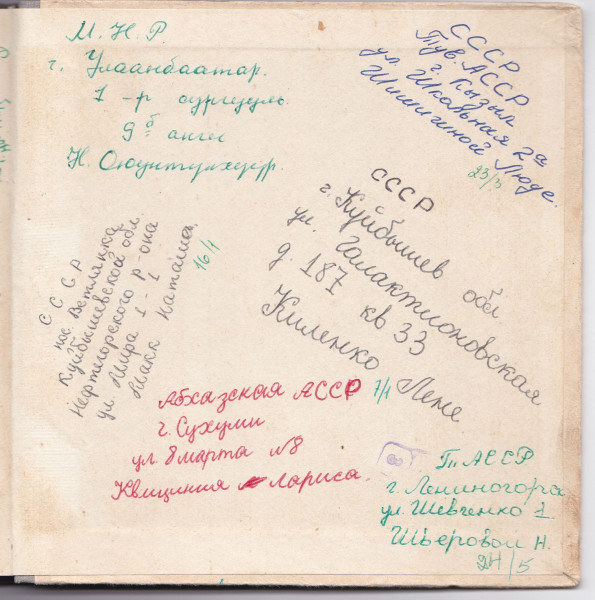 М. Н. Р.
г. Улаанбаатар.
1-р сургууль.
9б анги
Н. Оюунтунхуур.
СССР
Тув. АССР
г. Кызыл
ул. Школьная 2а
Шишигиной Люде.
23/3
СССР
г. Куйбышев обл
ул. Галактионовская
д. 187 кв 33
Киленко Лене
7/1
СССР
пос. Ветлянка
Куйбышевской обл.
Нефтегорского р-она
ул. Мира 1-1
Наташа.
16/1
Абхазская АССР
г. Сухуми
ул. 8 марта №8
Квициния Лариса.
Т. АССР
г. Лениногорск
ул. Шевченко 1.
Шверовой Н.
24/5